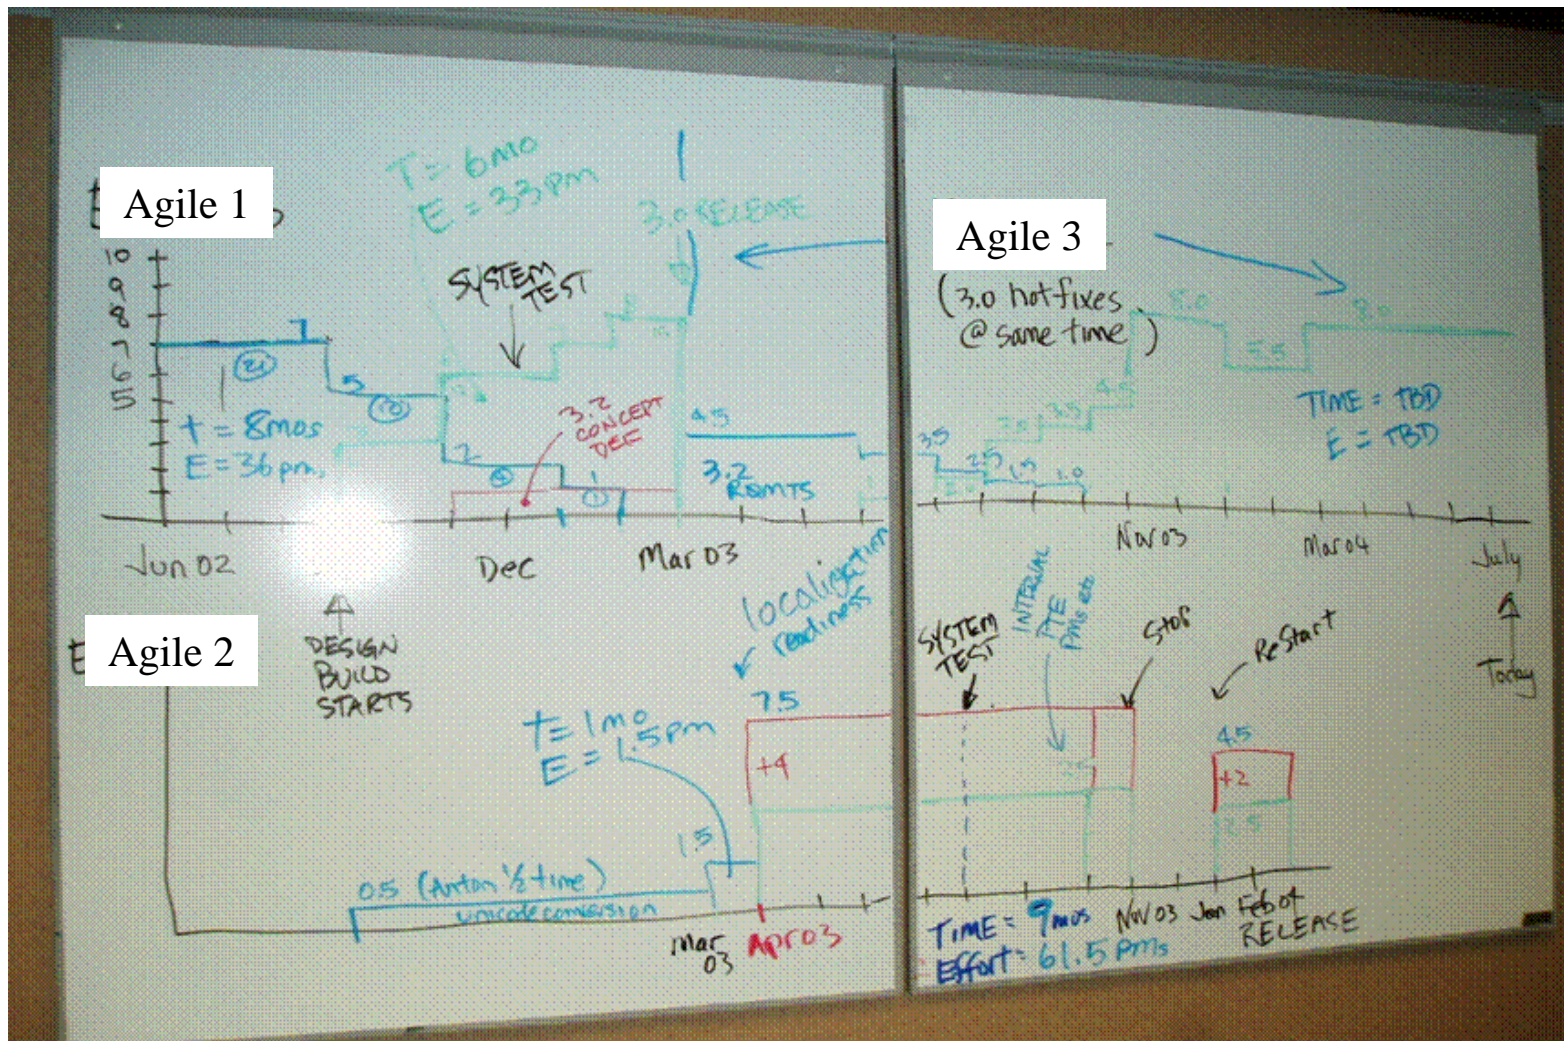 Agile 1
T = 6mo
E = 33pm
3.0 RELEASE
SYSTEM
TEST
10
9
8
7
6
5
7
21
5
10
t = 8mos
E = 36 pm.
2
4
1
1
3.2
CONCEPT
DEF
4.5
3.2
RQMTS
Jun 02
Dec
Mar 03
DESIGN
BUILD
STARTS
Agile 3
(3.0 hotfixes
@ same time)
8.0
5.5
8.0
3.5
2.5
1.5
1.0
3.5
TIME = TBD
E = TBD
Nov 03
Mar 04
July
Today
Agile 2
localization
readiness
t = 1mo
E = 1.5pm
7.5
+4
1.5
0.5 (Anton ½ time)
unicode conversion
Mar
03
Apr 03
SYSTEM
TEST
INTERNAL
PTE
PMs etc
Stop
ReStart
4.5
+2
2.5
TIME = 9mos
Effort = 61.5 PMs
Nov 03
Jan
Feb 04
RELEASE